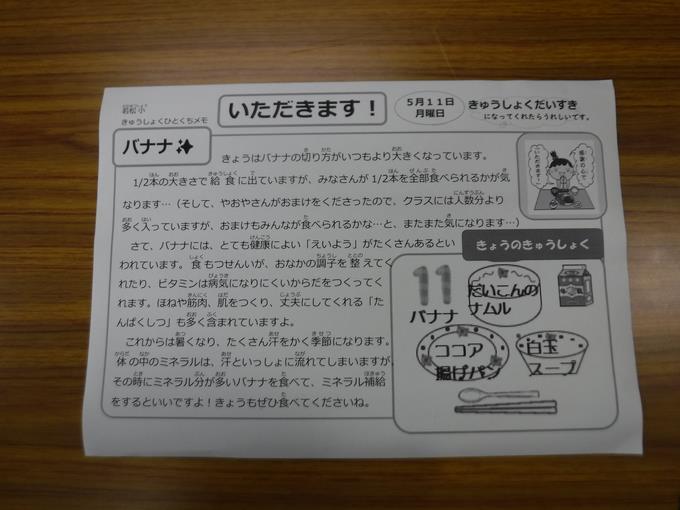 若松小
きゅうしょくひとくちメモ
いただきます！
5月11日
月曜日
きゅうしょくだいすき
になってくれたらうれしいです。
バナナ
感謝の心で
いただきます！
きょうはバナナの切り方がいつもより大きくなっています。
1/2本の大きさで給食に出ていますが、みなさんが1/2本を全部食べられるかが気
なります…（そして、やおやさんがおまけをくださったので、クラスには人数分より
多く入っていますが、おまけもみんなが食べられるかな…と、またまた気になります…）
さて、バナナには、とても健康によい「えいよう」がたくさんあるとい
われています。食もつせんいが、おなかの調子を整えてく
れたり、ビタミンは病気になりにくいからだをつくってく
れます。ほねや筋肉、肌をつくり、丈夫にしてくれる「た
んぱくしつ」も多く含まれていますよ。
これからは暑くなり、たくさん汗をかく季節になります。
体の中のミネラルは、汗といっしょに流れてしまいますが、
その時にミネラル分が多いバナナを食べて、ミネラル補給
をするといいですよ！きょうもぜひ食べてくださいね。
きょうのきゅうしょく
11
バナナ
だいこんの
ナムル
ココア
揚げパン
白玉
スープ